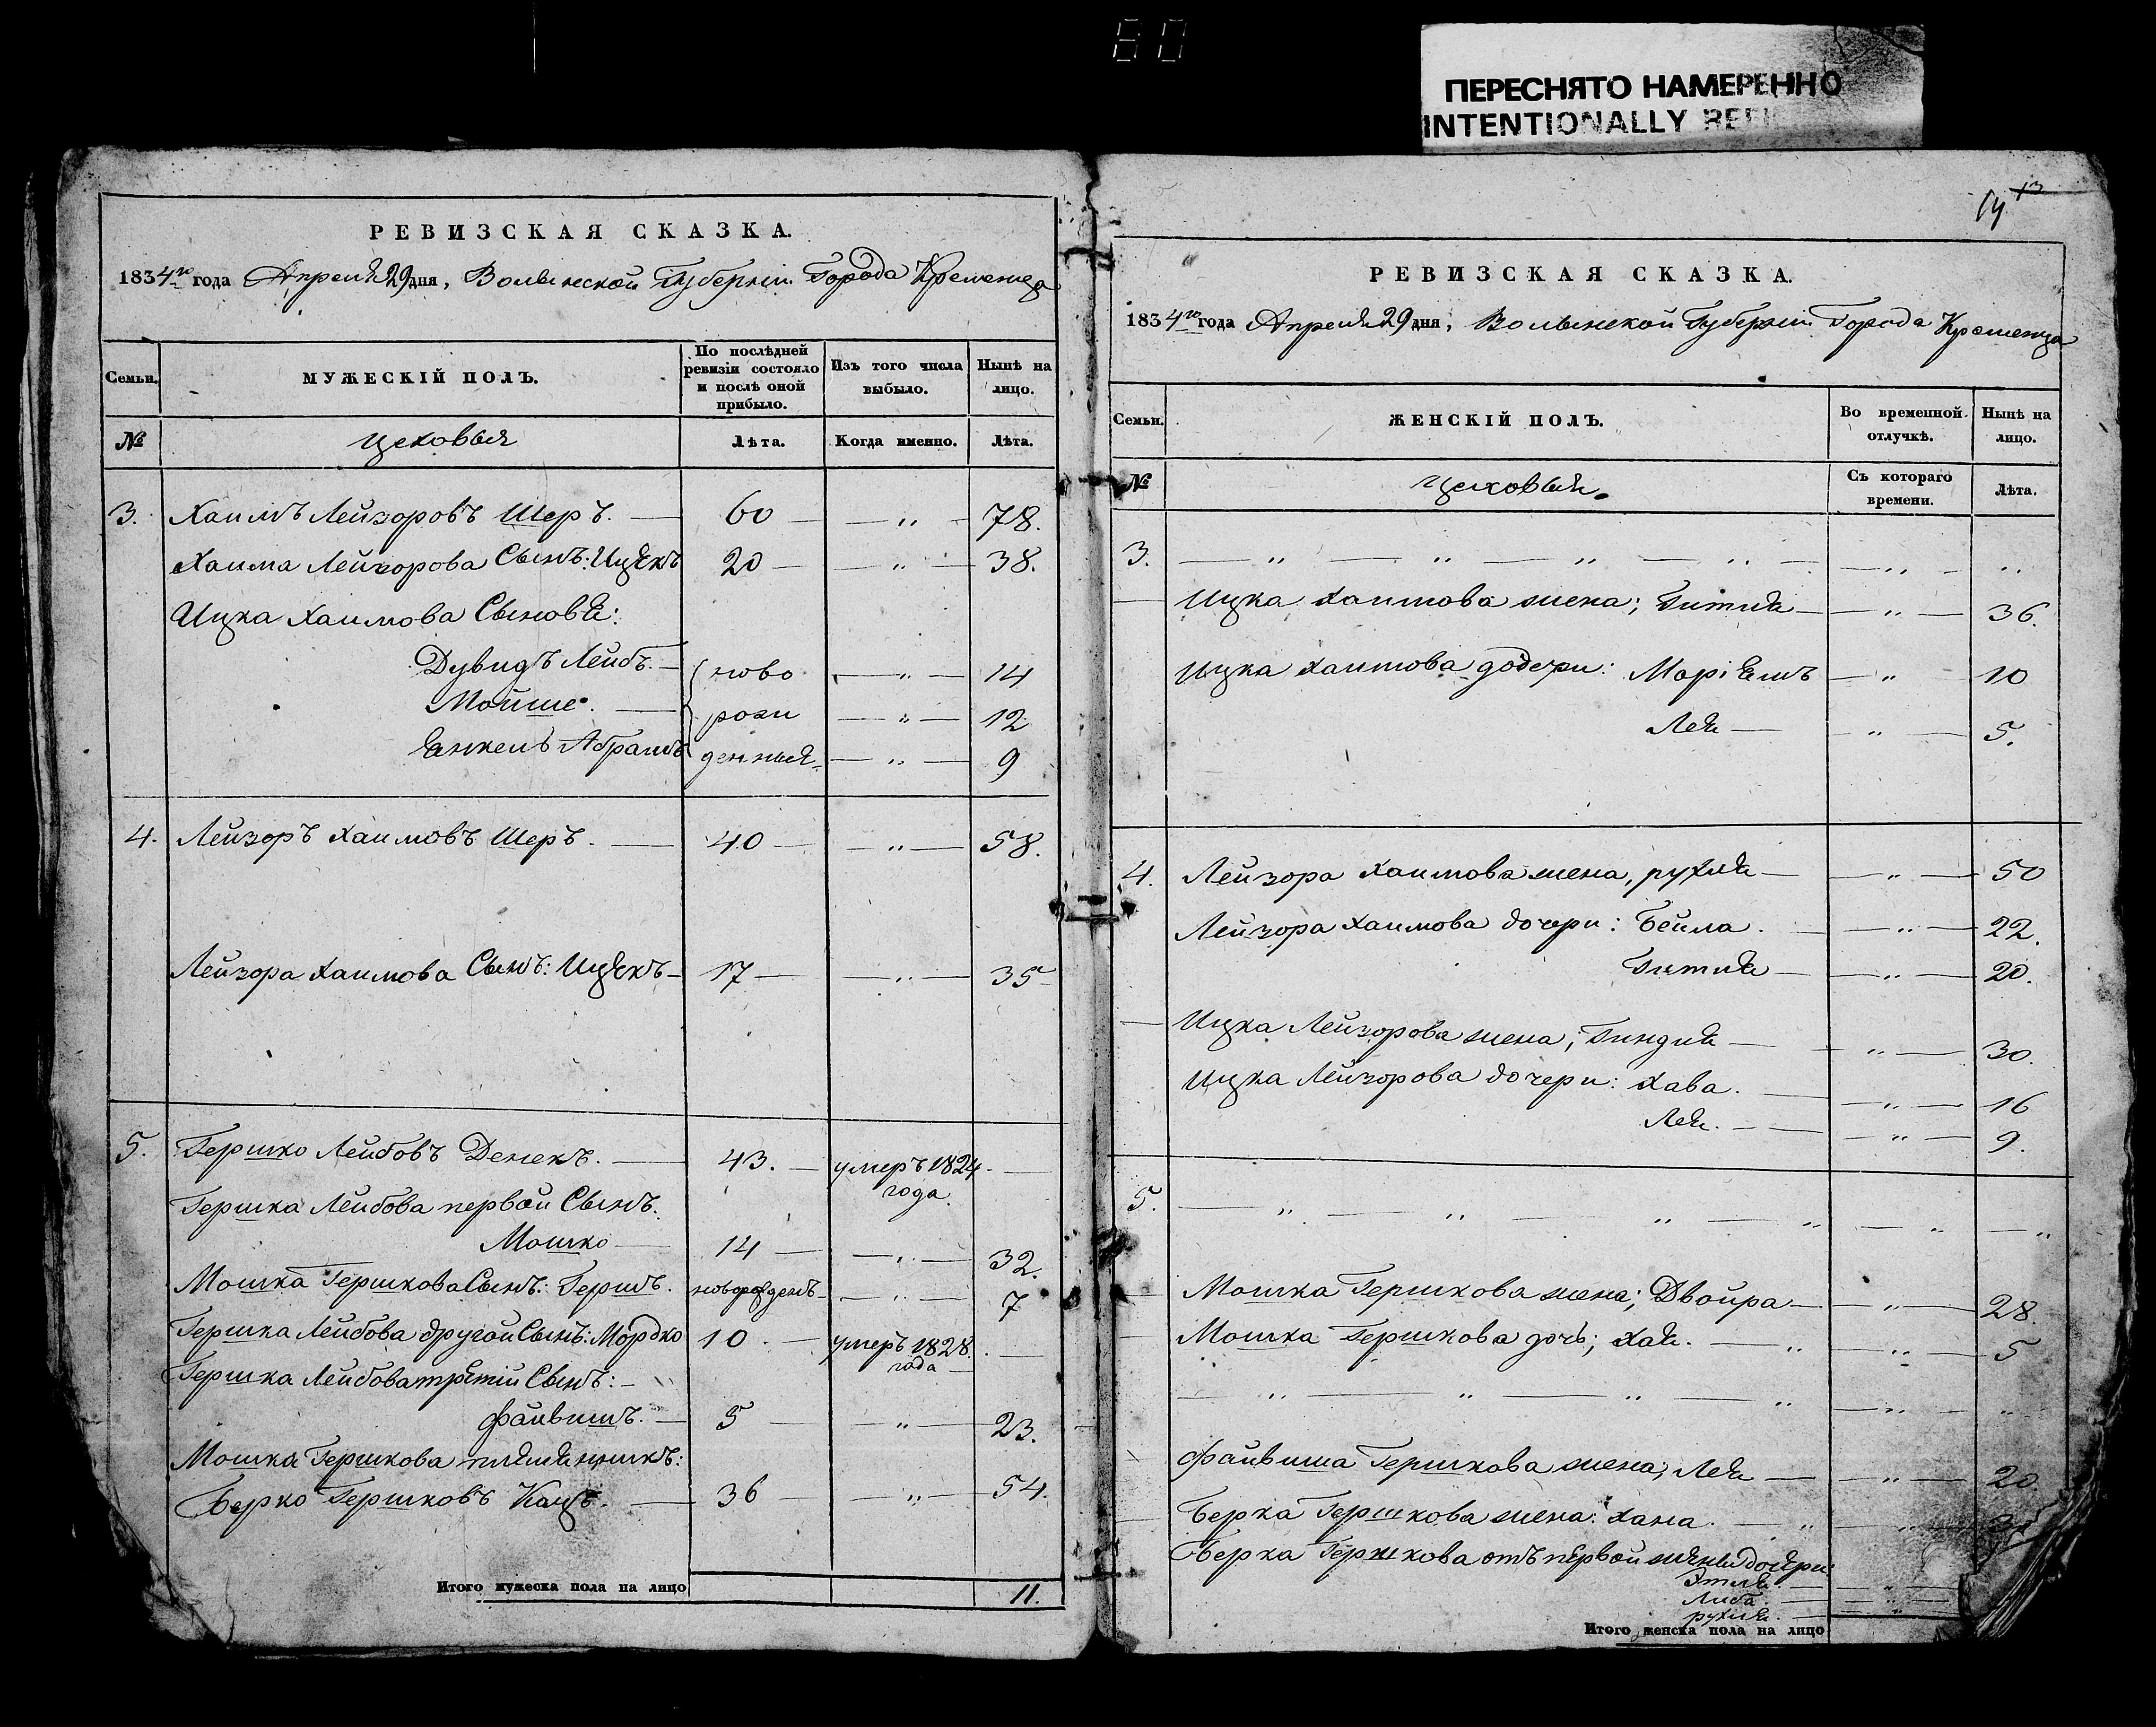 80
ПЕРЕСНЯТО НАМЕРЕННО
INTENTIONALLY
14 13
РЕВИЗСКАЯ СКАЗКА.
1834го года Апреля 29 дня, Волынской Губерніи Города Кременца
Семьи.
МУЖЕСКІЙ ПОЛЪ.
По послѣдней ревизіи состояло и послѣ оной прибыло.
Изъ того числа выбыло.
Нынѣ на лицо.
№ цеховыя Лѣта. Когда именно. Лѣта.
3. Хаимъ Лейзоровъ Шеръ. — 60 — — „ — 78.
Хаима Лейзорова Сынъ: Ицекъ 20 — — „ — 38.
Ицка Хаимова Сыновя:
Дувидъ Лейбъ. — ново — „ — 14
Мойше. — рожи — „ — 12
Янкель Абрамъ денныя — „ — 9
4. Лейзоръ Хаимовъ Шеръ. — 40 — — „ — 58.
Лейзора Хаимова Сынъ: Ицекъ — 17 — — „ — 35
5. Гершко Лейбовъ Денекъ. — 43. — умеръ 1824 —
года
Гершка Лейбова первой Сынъ:
Мошко — 14 — — „ — 32.
Мошка Гершкова Сынъ: Гершъ. новорожденъ — — „ — 7
Гершка Лейбова другой Сынъ: Мордко 10. — умеръ 1828. —
года
Гершка Лейбова третій Сынъ: —
Файвишъ. — 5 — — „ — 23.
Мошка Гершкова племянникъ:
Берко Гершковъ Кацъ. — 36 — „ — 54.
Итого мужеска пола на лицо 11.
РЕВИЗСКАЯ СКАЗКА.
1834го года Апреля 29 дня, Волынской Губерніи Города Кременца
Семьи.
ЖЕНСКІЙ ПОЛЪ.
Во временной отлучкѣ.
Нынѣ на лицо.
№ цеховыя. Съ котораго времени. Лѣта.
3. — „ — „ — „ — „ — — „ — „
Ицка Хаимова жена; Гитля — — „ — 36.
Ицка Хаимова дочери: Маріямъ — „ — 10
Лея — — „ — 5.
4. Лейзора Хаимова жена, рухля — — „ — 50
Лейзора Хаимова дочери: Бейла. — — „ — 22.
Гитля — — „ — 20.
Ицка Лейзорова жена; Гиндля — — „ — 30.
Ицка Лейзорова дочери: Хава. — — „ — 16
Лея. — — — „ — 9.
5. — „ — „ — „ — „ — „ — „
Мошка Гершкова жена; Двойра — — „ — 28.
Мошка Гершкова дочь; Хая. — „ — „ — 5
— „ — „ — „ — „ — „ — „
Файвиша Гершкова жена; Лея — — „ — 20.
Берка Гершкова жена: Хана. — „ — „ —
Берка Гершкова отъ первой жены дочери
Этля — — „ —
Либа. — — „ —
рухля. — — „ —
Итого женска пола на лицо